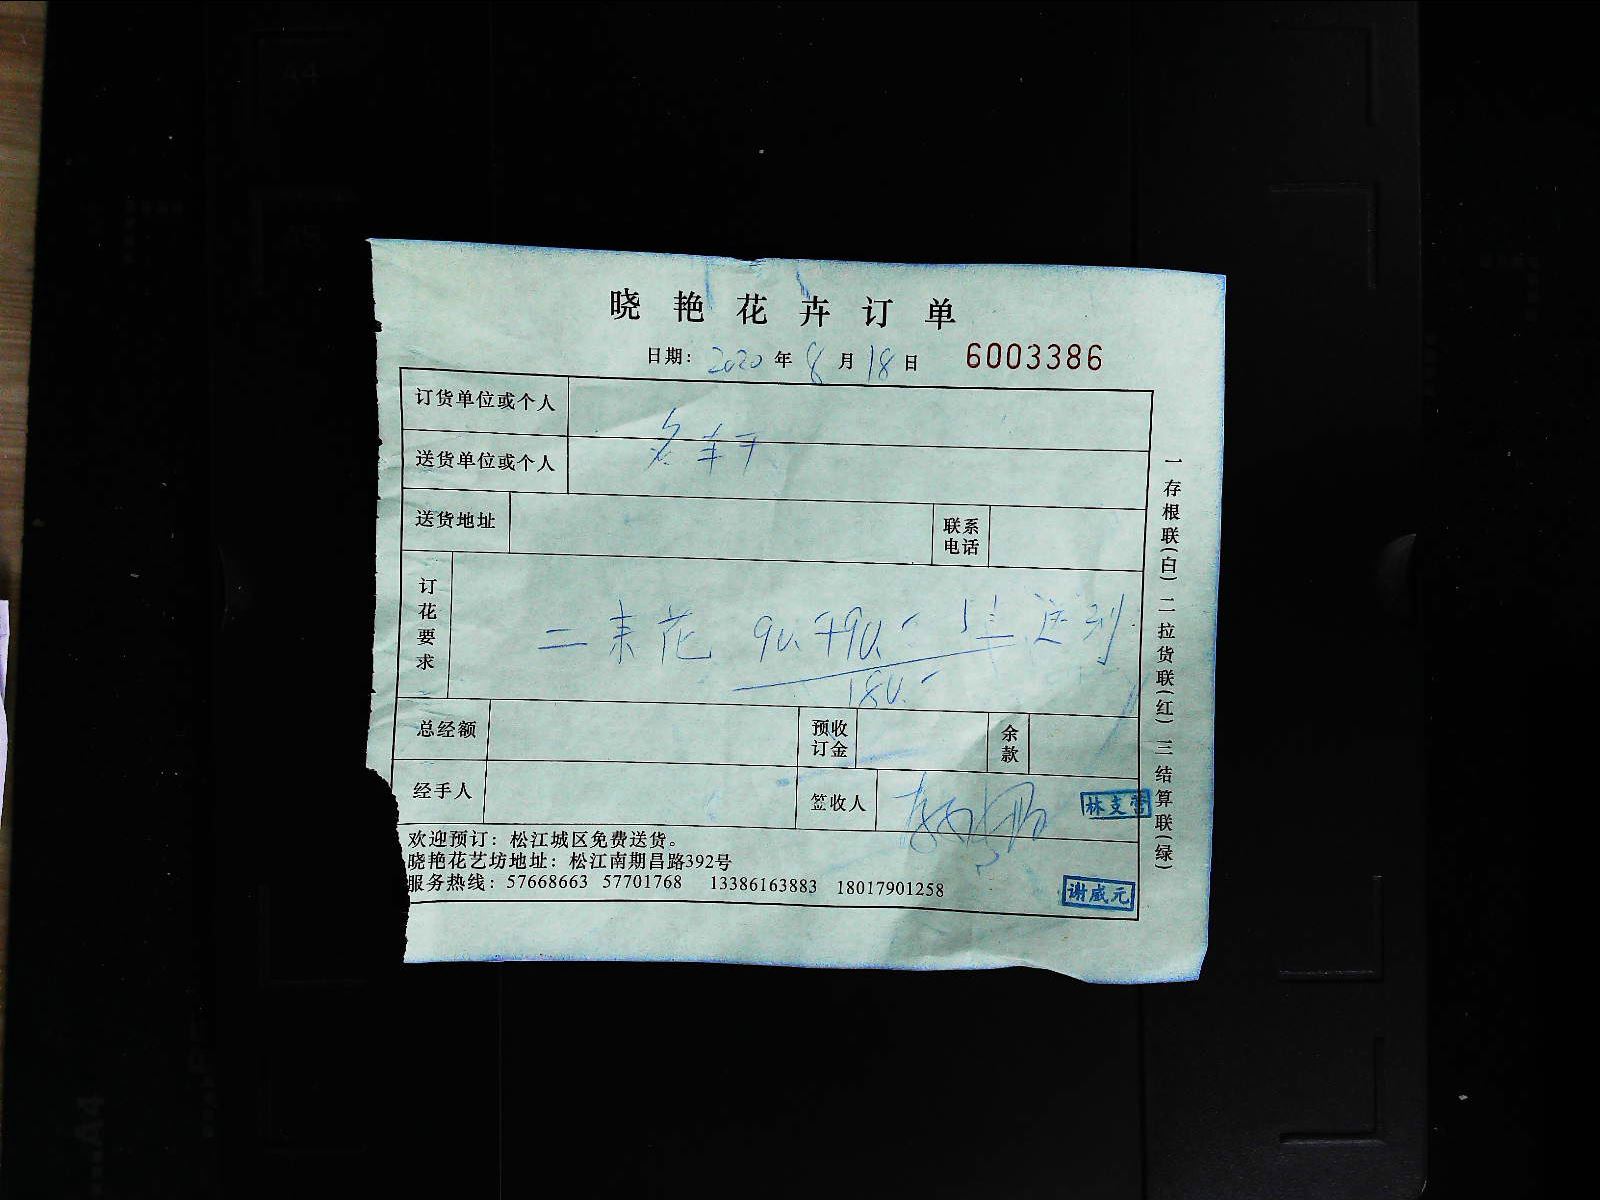 晓艳花卉订单
日期: 2020 年 8 月 18 日 6003386
订货单位或个人
送货单位或个人
送货地址 联系电话
订花要求 二束花 90.+90.- 送到
180.-
总经额 预收订金 余款
经手人 签收人 林支营
欢迎预订: 松江城区免费送货。
晓艳花艺坊地址: 松江南期昌路392号
服务热线: 57668663 57701768 13386163883 18017901258
谢威元
一存根联(白) 二拉货联(红) 三结算联(绿)
A4